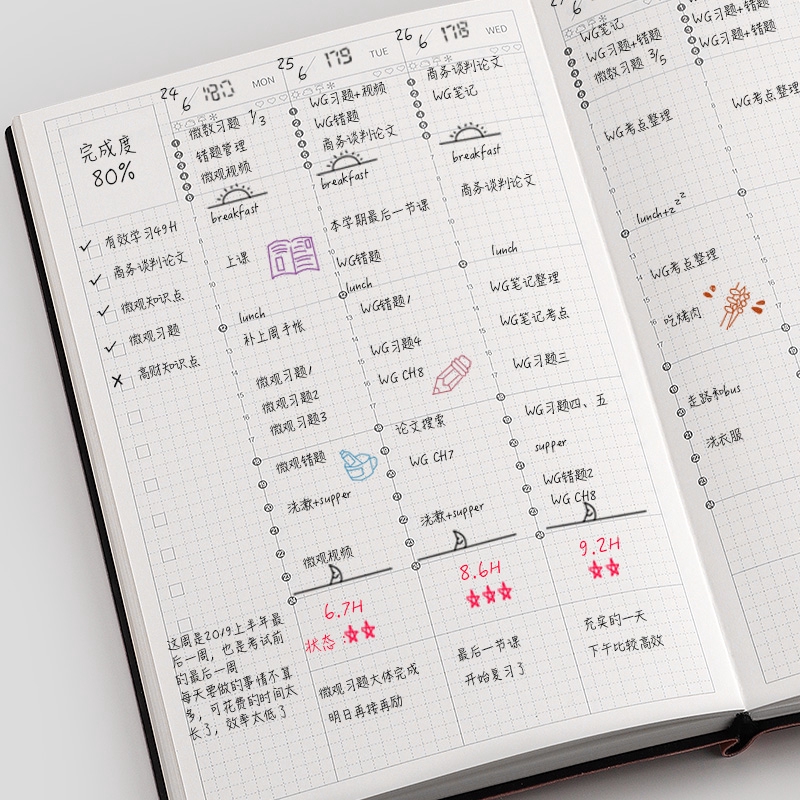 完成度
80%
有效学习49H
商务谈判论文
微观知识点
微观习题
高财知识点
这周是2019上半年最
后一周，也是考试前
的最后一周
每天要做的事情不算
多，可花费的时间太
长了，效率太低了
24
6
180
MON
微数习题 1/3
错题管理
微观视频
breakfast
上课
lunch
补上周手帐
微观习题1
微观习题2
微观习题3
微观错题
洗漱+supper
微观视频
6.7H
状态：
微观习题大体完成
明日再接再励
25
6
179
TUE
WG习题+视频
WG错题
商务谈判论文
breakfast
本学期最后一节课
WG错题
lunch
WG错题1
WG习题4
WG CH8
论文搜索
WG CH7
洗漱+supper
8.6H
最后一节课
开始复习了
26
6
178
WED
商务谈判论文
WG笔记
breakfast
商务谈判论文
lunch
WG笔记整理
WG笔记考点
WG习题三
WG习题四、五
supper
WG错题2
WG CH8
9.2H
充实的一天
下午比较高效
27
6
WG笔记
WG习题+错题
微数习题 3/5
WG考点整理
lunch+zzz
WG考点整理
吃烤肉
走路和bus
洗衣服
WG习题+错题
WG习题+错题
WG考点整理